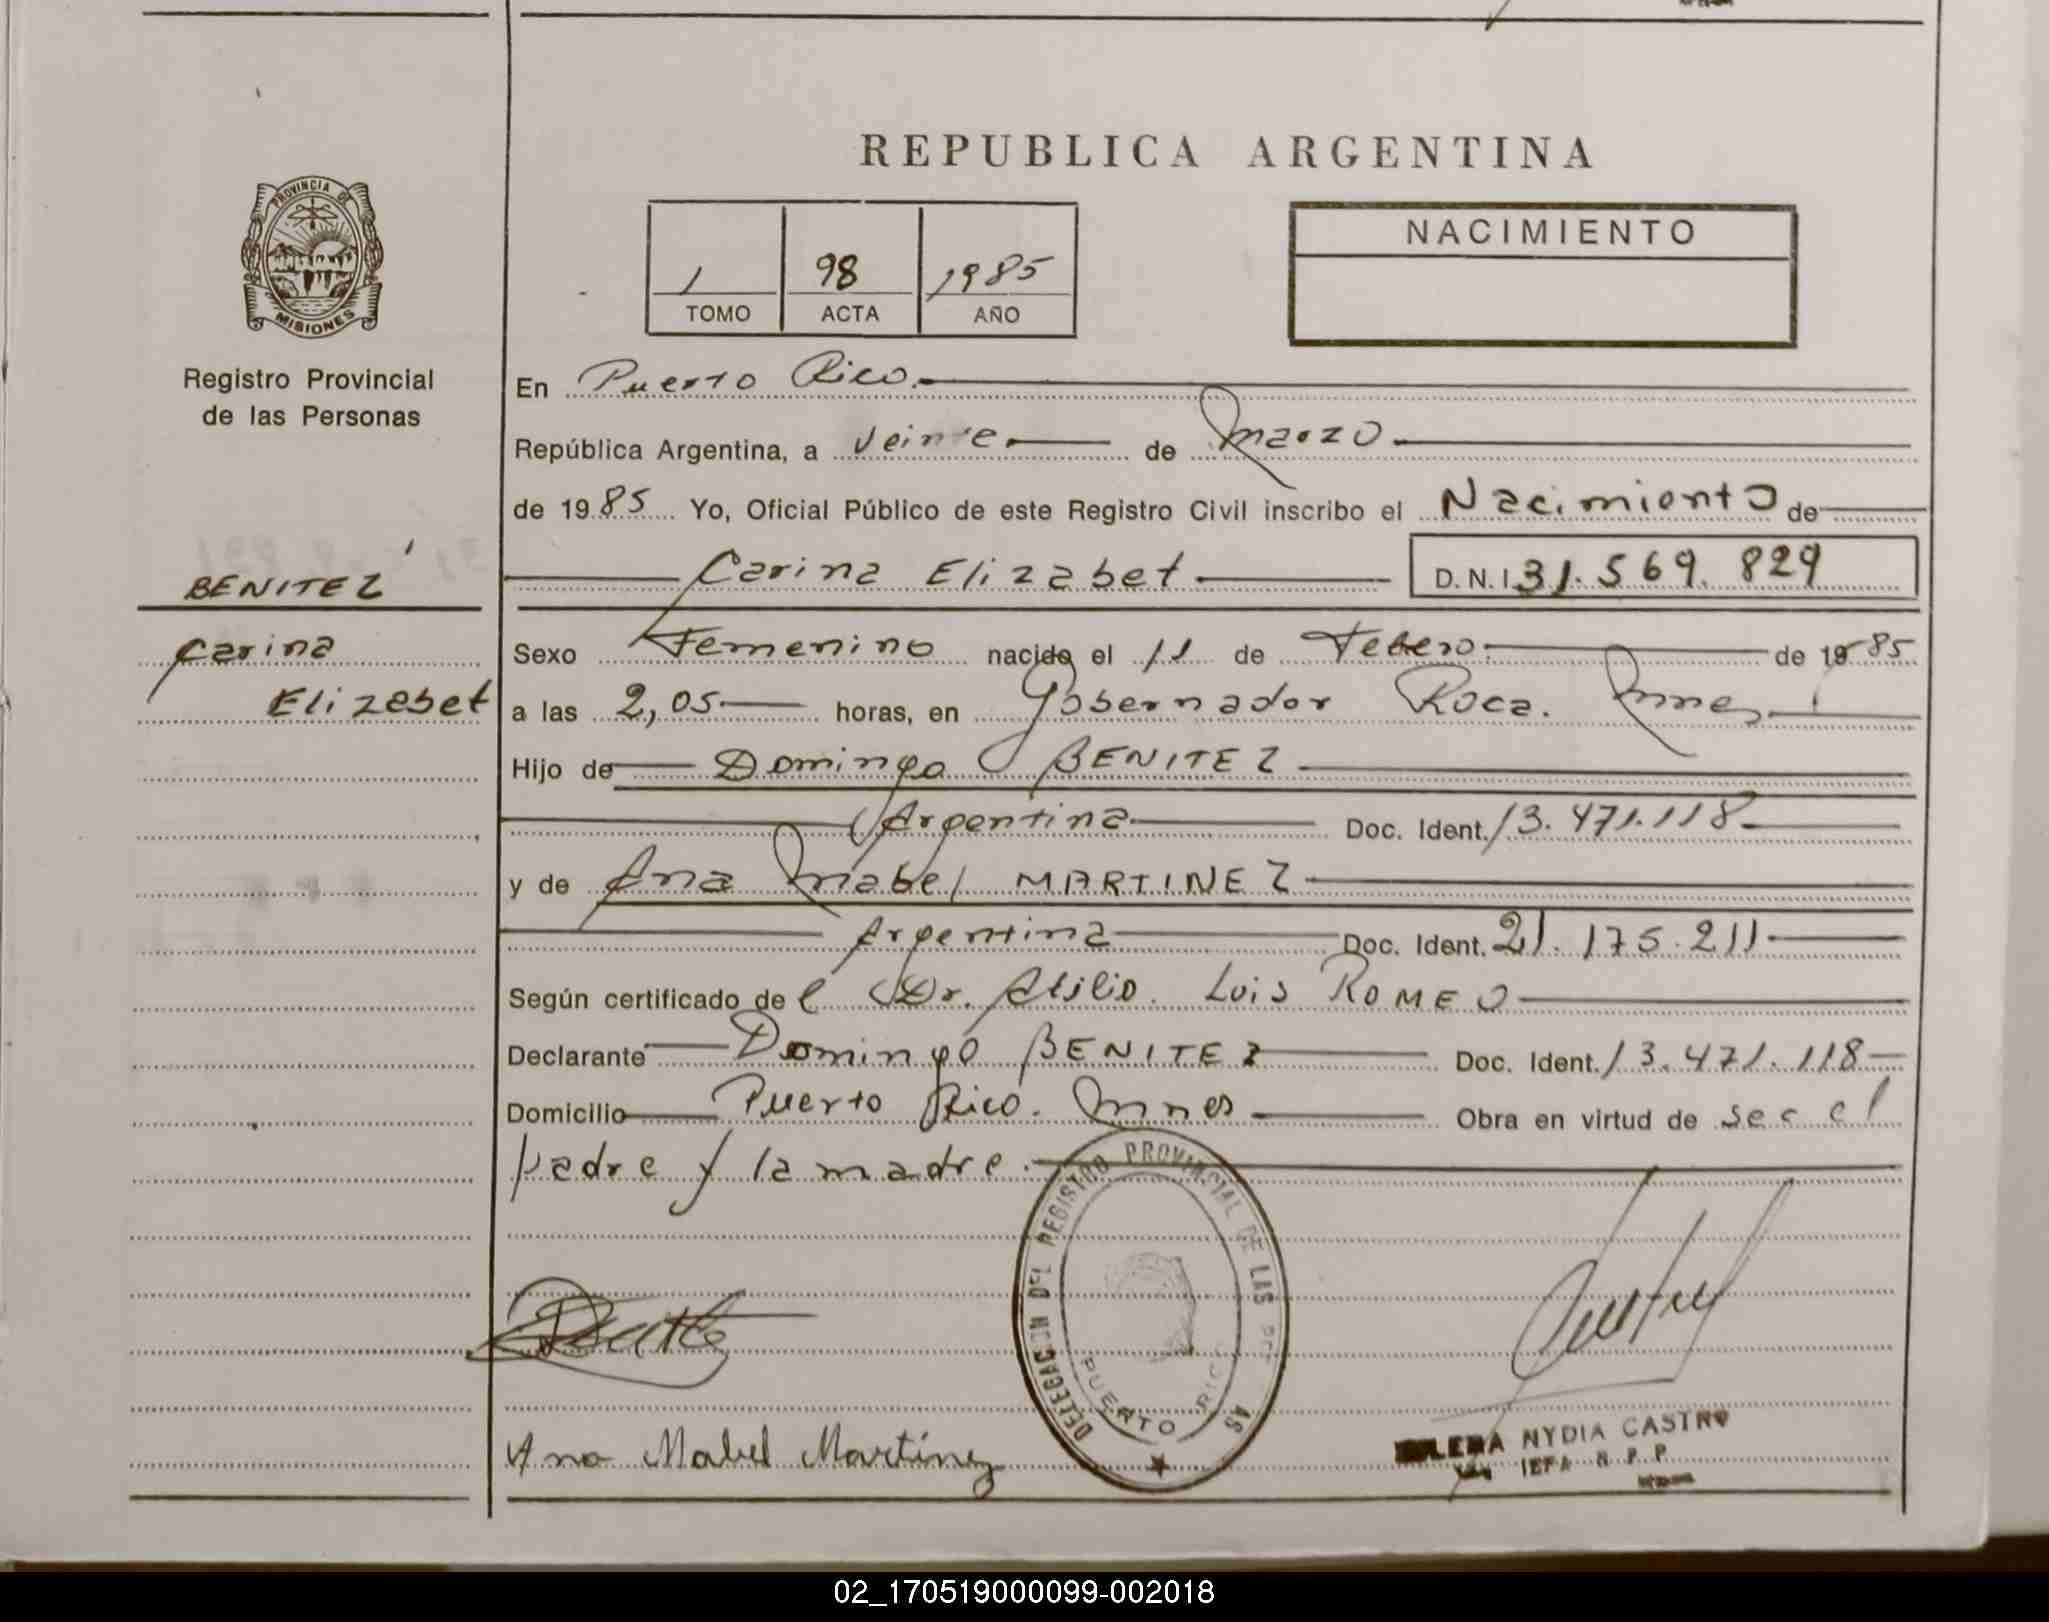 REPUBLICA ARGENTINA
PROVINCIA DE
MISIONES
Registro Provincial
de las Personas
1 98 1985
TOMO ACTA AÑO
NACIMIENTO
En Puerto Rico.
República Argentina, a veinte de Marzo
de 1985 Yo, Oficial Público de este Registro Civil inscribo el Nacimiento de
BENITEZ
Carina Elizabet D.N.I. 31.569.829
Carina
Elizabet
Sexo Femenino nacido el 11 de Febrero de 1985
a las 2,05 horas, en Gobernador Roca. Mnes
Hijo de Domingo BENITEZ
Argentina Doc. Ident. 13.471.118
y de Ana Mabel MARTINEZ
Argentina Doc. Ident. 21.175.211
Según certificado del Dr. Atilio Luis ROMEO
Declarante Domingo BENITEZ Doc. Ident. 13.471.118
Domicilio Puerto Rico. Mnes Obra en virtud de ser el
padre y la madre.
DELEGACION DEL REGISTRO PROVINCIAL DE LAS
PUERTO RICO
Ana Mabel Martínez
NYDIA CASTRO
R.P.P.
02_170519000099-002018